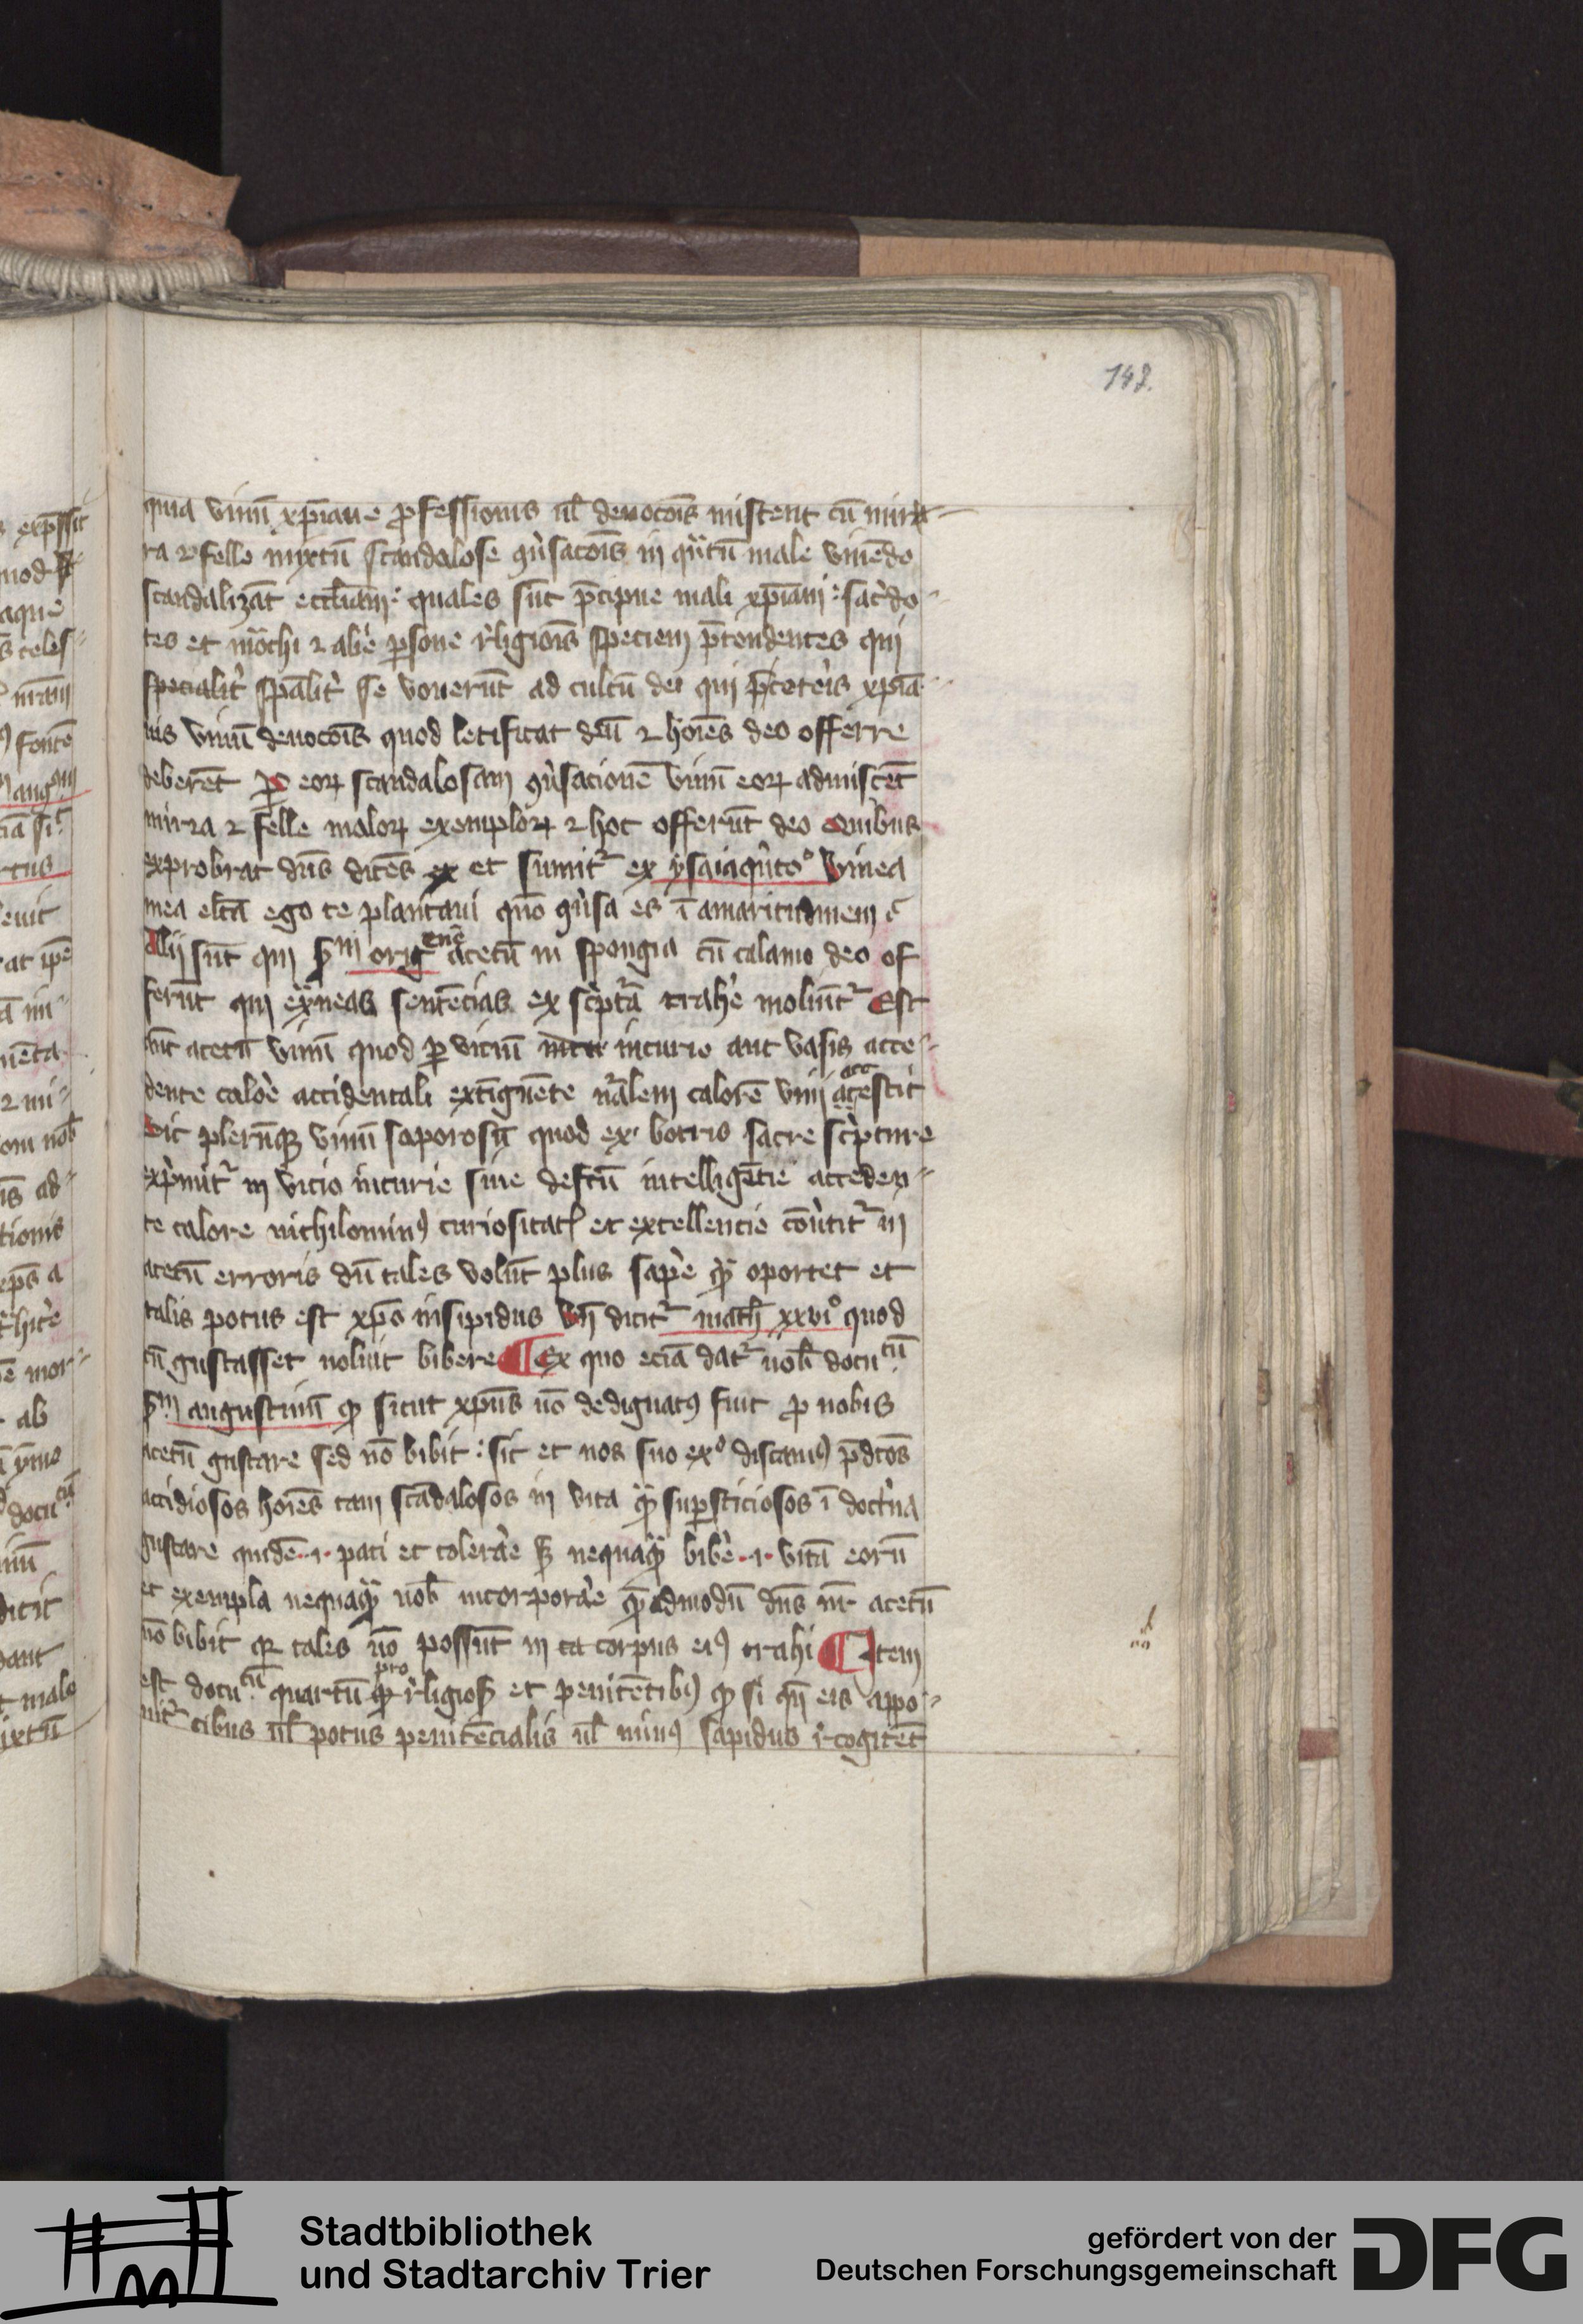 148.
quia vinū xp̄iane ꝓfessionis ul̄ deuoc̄ois miscent cū mir
ra ⁊ felle mixtū scandalose ꝯ̇sac̄ois in qͣtū male viuēdo
scandalizāt eccl̄iam : quales sūt p̄cipue mali xp̄iani : sac̄do
tes et mōchi ⁊ alie ꝑsone religiōis speciem p̄tendentes qui
specialit᷑ sp̄alit᷑ se vouerūt ad cultū dei qui p̄ ceteris xp̄ia
nis vinū deuoc̄ois quod letificat deū ⁊ hoīes deo offerre
deberēt ꝑ eoꝝ scandalosam ꝯ̇sacionē vinū eoꝝ admiscēt
mirra ⁊ felle maloꝝ exemploꝝ ⁊ hoc offerūt deo Quibus
exprobrat dn̄s dicēs ex et sumit᷑ ex ysaia qͥntoͦ Vinea
mea el̄ta ego te plantaui quō ꝯ̇sa es ī amaritudinem
Alij sūt qui ẜm origenē acetū in spongia cū calamo deo of
ferūt qui ext̄neas sentēcias ex sc̄ptͣa trahe᷑ moliūt᷑ Est
acetū vinū quod ꝑ viciū incurie aut vasis acce
dente calōe accidentali extīguēte nāalem calorē vini acescit
Sic plerūqꝫ vinū saporosū quod ex botris sacre scͥpture
expͥmit᷑ in vicio incurie siue defcū intelligētie acceden
te calore nichilominꝰ curiositatꝭ et excellencie cōu̇tit᷑ in
acetū erroris dū tales volūt plus sape᷑ qͣꝫ oportet et
talis potus est xp̄o insipidus Vn̄ dicit᷑ math̄ xxviͦ quod
cū gustasset noluit bibere ¶ Ex quo eciā dat᷑ nob̄ docu.tū
ẜm augustinū ꝙ sicut xp̄us nō dedignatꝰ fuit ꝓ nobis
acetū gustare sed nō bibit : sic et nos suo exͦ discamꝰ p̄dc̄os
accidiosos hoīes tam scādalosos in vita qͣꝫ suꝑsticiosos ī doctͥna
gustare quidē .i. pati et tolerāe sꝫ nequaqͣꝫ bibe᷑ .i. vitā eorū
et exempla nequaqͣꝫ nob̄ incorporāe quēadmodū dn̄s nr̄ acetū
nō bibit qꝛ tales nō possūt in ta corpus eiꝰ trahi ¶ Item
est docu.tū quartū pro religioẜ et penitētibꝰ ꝙ si qn̄ eis appo
nit᷑ cibus ul̄ potus penitēcialis ul̄ minꝰ sapidus r̄cogitēt
Stadtbibliothek
und Stadtarchiv Trier
gefördert von der
Deutschen Forschungsgemeinschaft
DFG